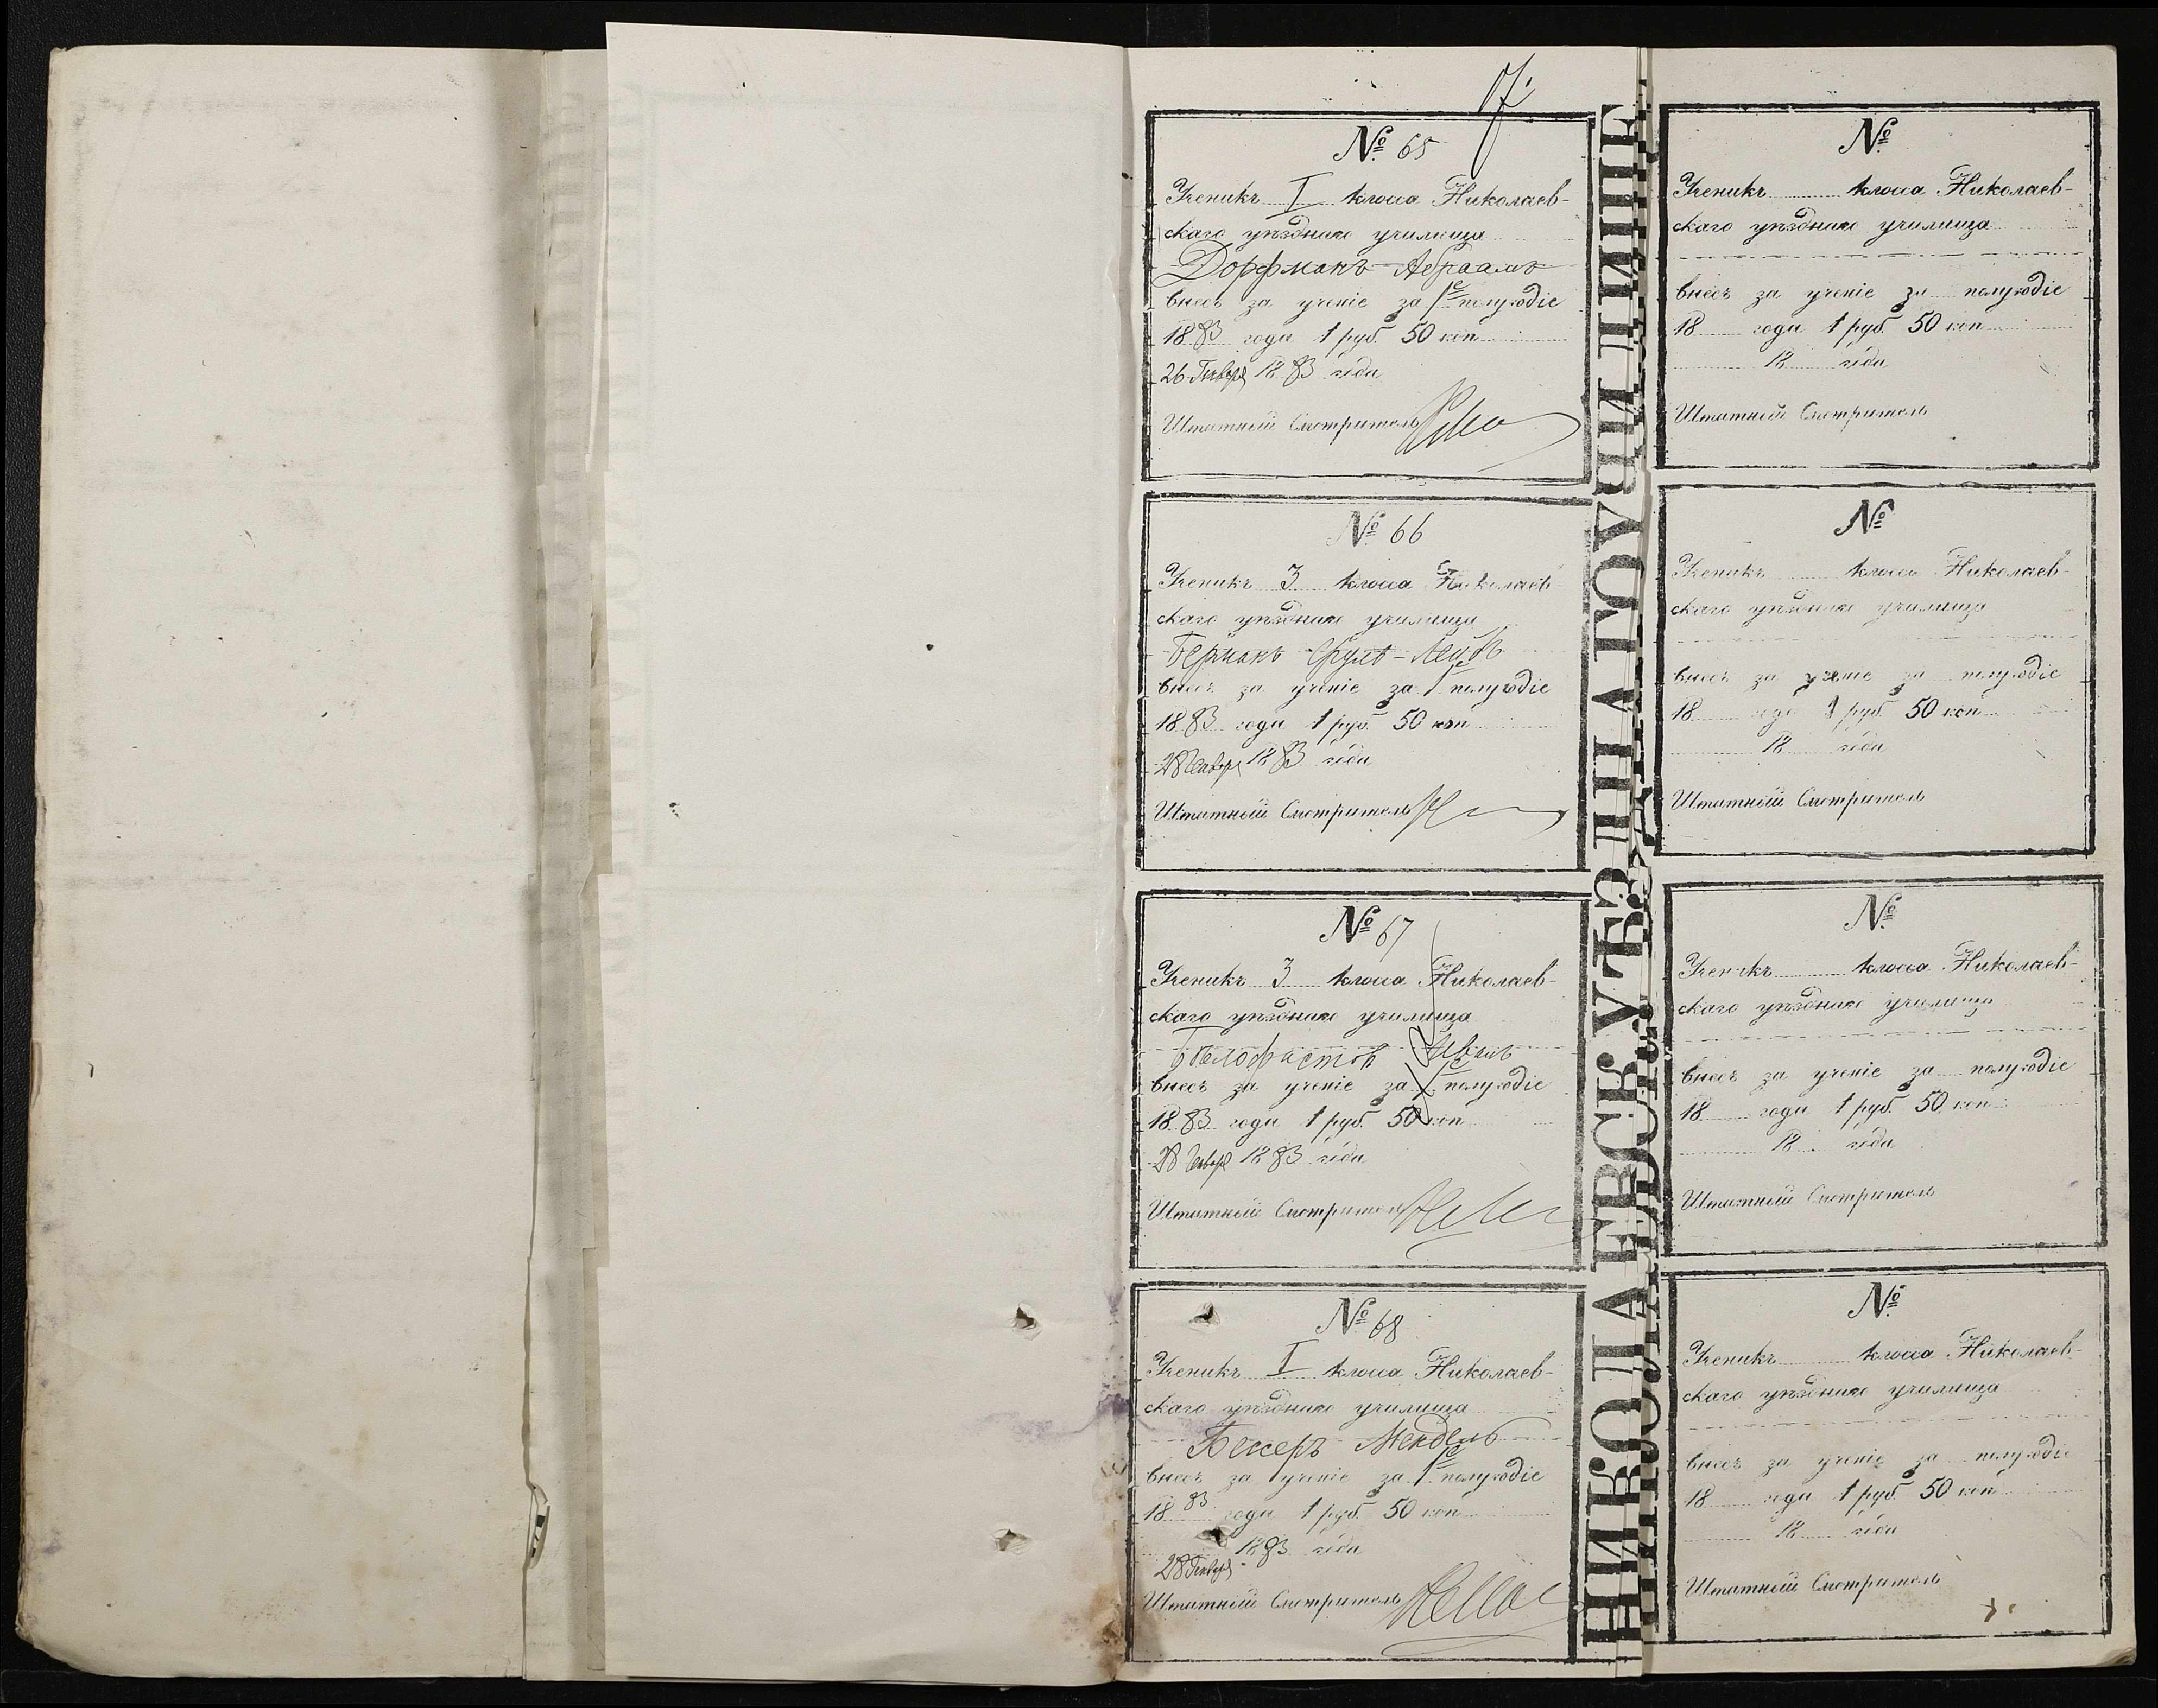 17.
№ 65
Ученикъ I класса Николаев-
скаго уѣзднаго училища
Дорфманъ Абраамъ
внесъ за ученіе за 1е полугодіе
1883 года 1 руб. 50 коп
26 Января 1883 года
Штатный Смотритель
№ 66
Ученикъ 3 класса Николаев-
скаго уѣзднаго училища
Берманъ Сруль-Лейбъ
внесъ за ученіе за 1е полугодіе
1883 года 1 руб. 50 коп
28 Января 1883 года
Штатный Смотритель
№ 67
Ученикъ 3 класса Николаев-
скаго уѣзднаго училища
Иванъ
внесъ за ученіе за 1е полугодіе
1883 года 1 руб. 50 коп
28 Января 1883 года
Штатный Смотритель
№ 68
Ученикъ I класса Николаев-
скаго уѣзднаго училища
Бекеръ Мендель
внесъ за ученіе за 1е полугодіе
1883 года 1 руб. 50 коп
28 Января 1883 года
Штатный Смотритель
НИКОЛАЕВСК. УѢЗДНАГО УЧИЛИЩЕ
№
Ученикъ класса Николаев-
скаго уѣзднаго училища
внесъ за ученіе за полугодіе
18 года 1 руб. 50 коп
18 года
Штатный Смотритель
№
Ученикъ класса Николаев-
скаго уѣзднаго училища
внесъ за ученіе за полугодіе
18 года 1 руб. 50 коп
18 года
Штатный Смотритель
№
Ученикъ класса Николаев-
скаго уѣзднаго училища
внесъ за ученіе за полугодіе
18 года 1 руб. 50 коп
18 года
Штатный Смотритель
№
Ученикъ класса Николаев-
скаго уѣзднаго училища
внесъ за ученіе за полугодіе
18 года 1 руб. 50 коп
18 года
Штатный Смотритель